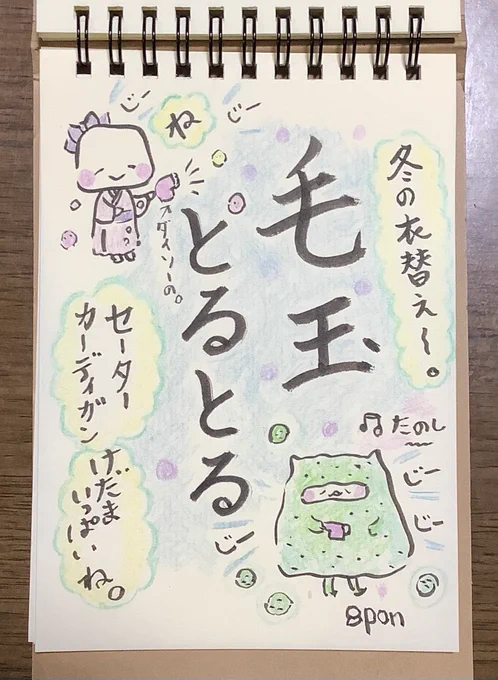 冬の衣替え〜。
毛玉
とるとる
ね
じー
じー
※ダイソーの。
セーター
カーディガン
げだま
いっぱいね。
♫たのし〜
じー
じー
じー
8pon